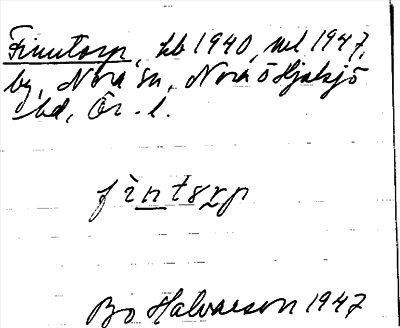 Finntorp, kb 1940, ml 1947,
by, Nora sn, Nora o Hjulsjö
bd, Ör. l.
fìntsrp
Bo Halvarson 1947